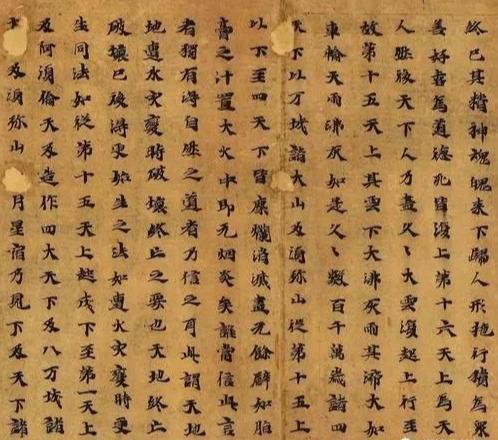 終已其精神魂魄来下歸人形施行續為衆
善好喜為道德死皆復上第十六天上為天
人然後天下人乃盡久〻大雲復起上行至
故第十五天上其雲下大沸灰雨其渧大如
車輪天雨沸灰如是久〻數百千萬歲諸四
天下以万城諸大山及湏弥山從第十五上
以下至四天下皆糜爛消滅盡无餘辟如脂
膏之汁置大火中即无烟炎矣誰當信此言
者獨有得自然之道者乃信之耳此謂天地
地遭水灾變時破壞終亡之要也天地終亡
破壞已後得更始生之法如遭火灾變時更
生同法如從第十五天上起戊下至第一天上
及阿湏倫天及造作四大天下及八万城諸
及湏弥山月星宿乃見下及天下諸